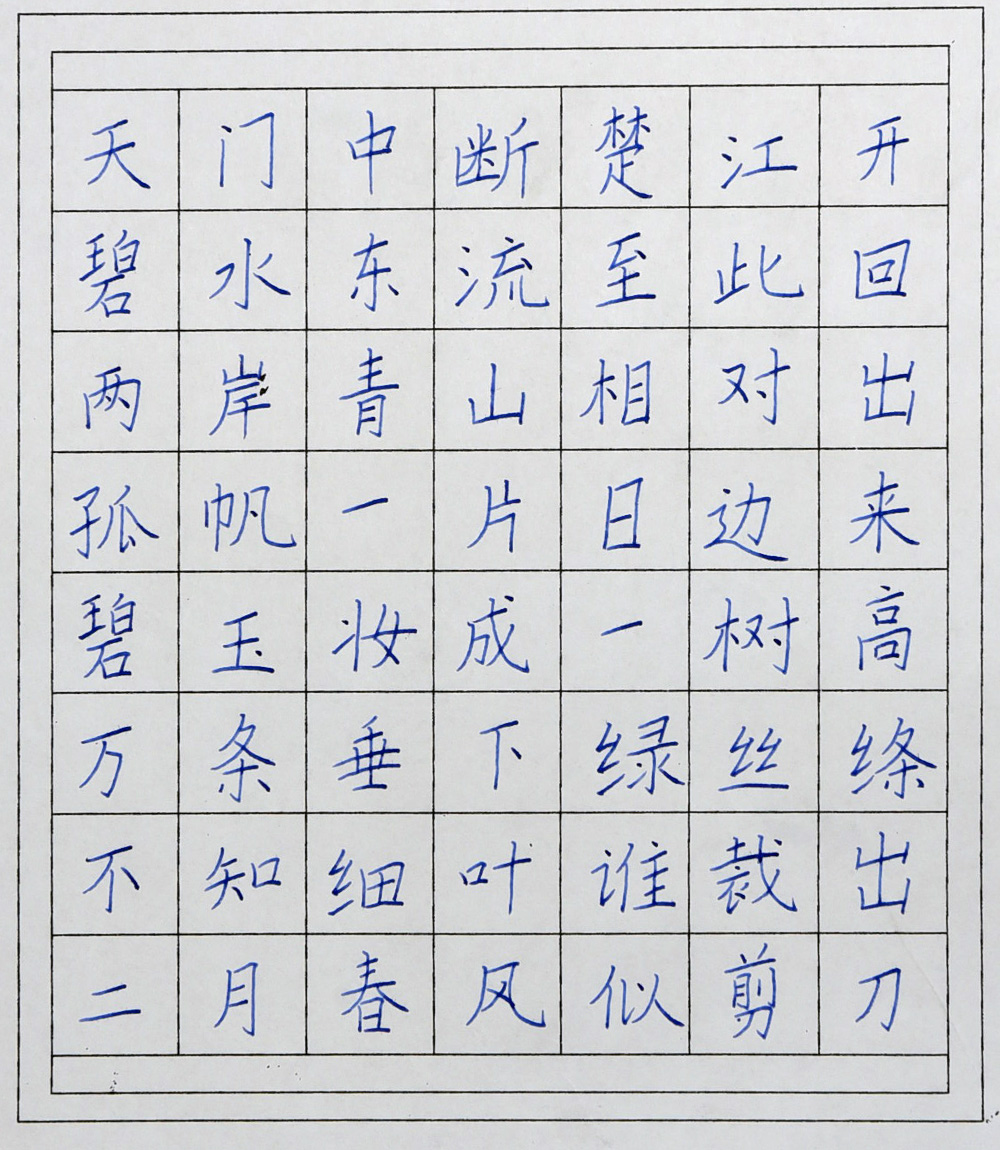 天门中断楚江开
碧水东流至此回
两岸青山相对出
孤帆一片日边来
碧玉妆成一树高
万条垂下绿丝绦
不知细叶谁裁出
二月春风似剪刀